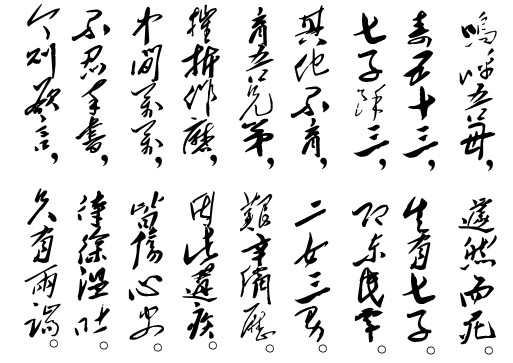 嗚呼吾母，遽然而死。
壽五十三，生有七子。
七子餘三，即東民覃。
其他不育，二女三男。
育吾兄弟，艱辛備歷。
摧折作磨，因此遘疾。
中間萬萬，皆傷心史。
不忍卒書，待徐溫吐。
今則欲言，只有兩端。